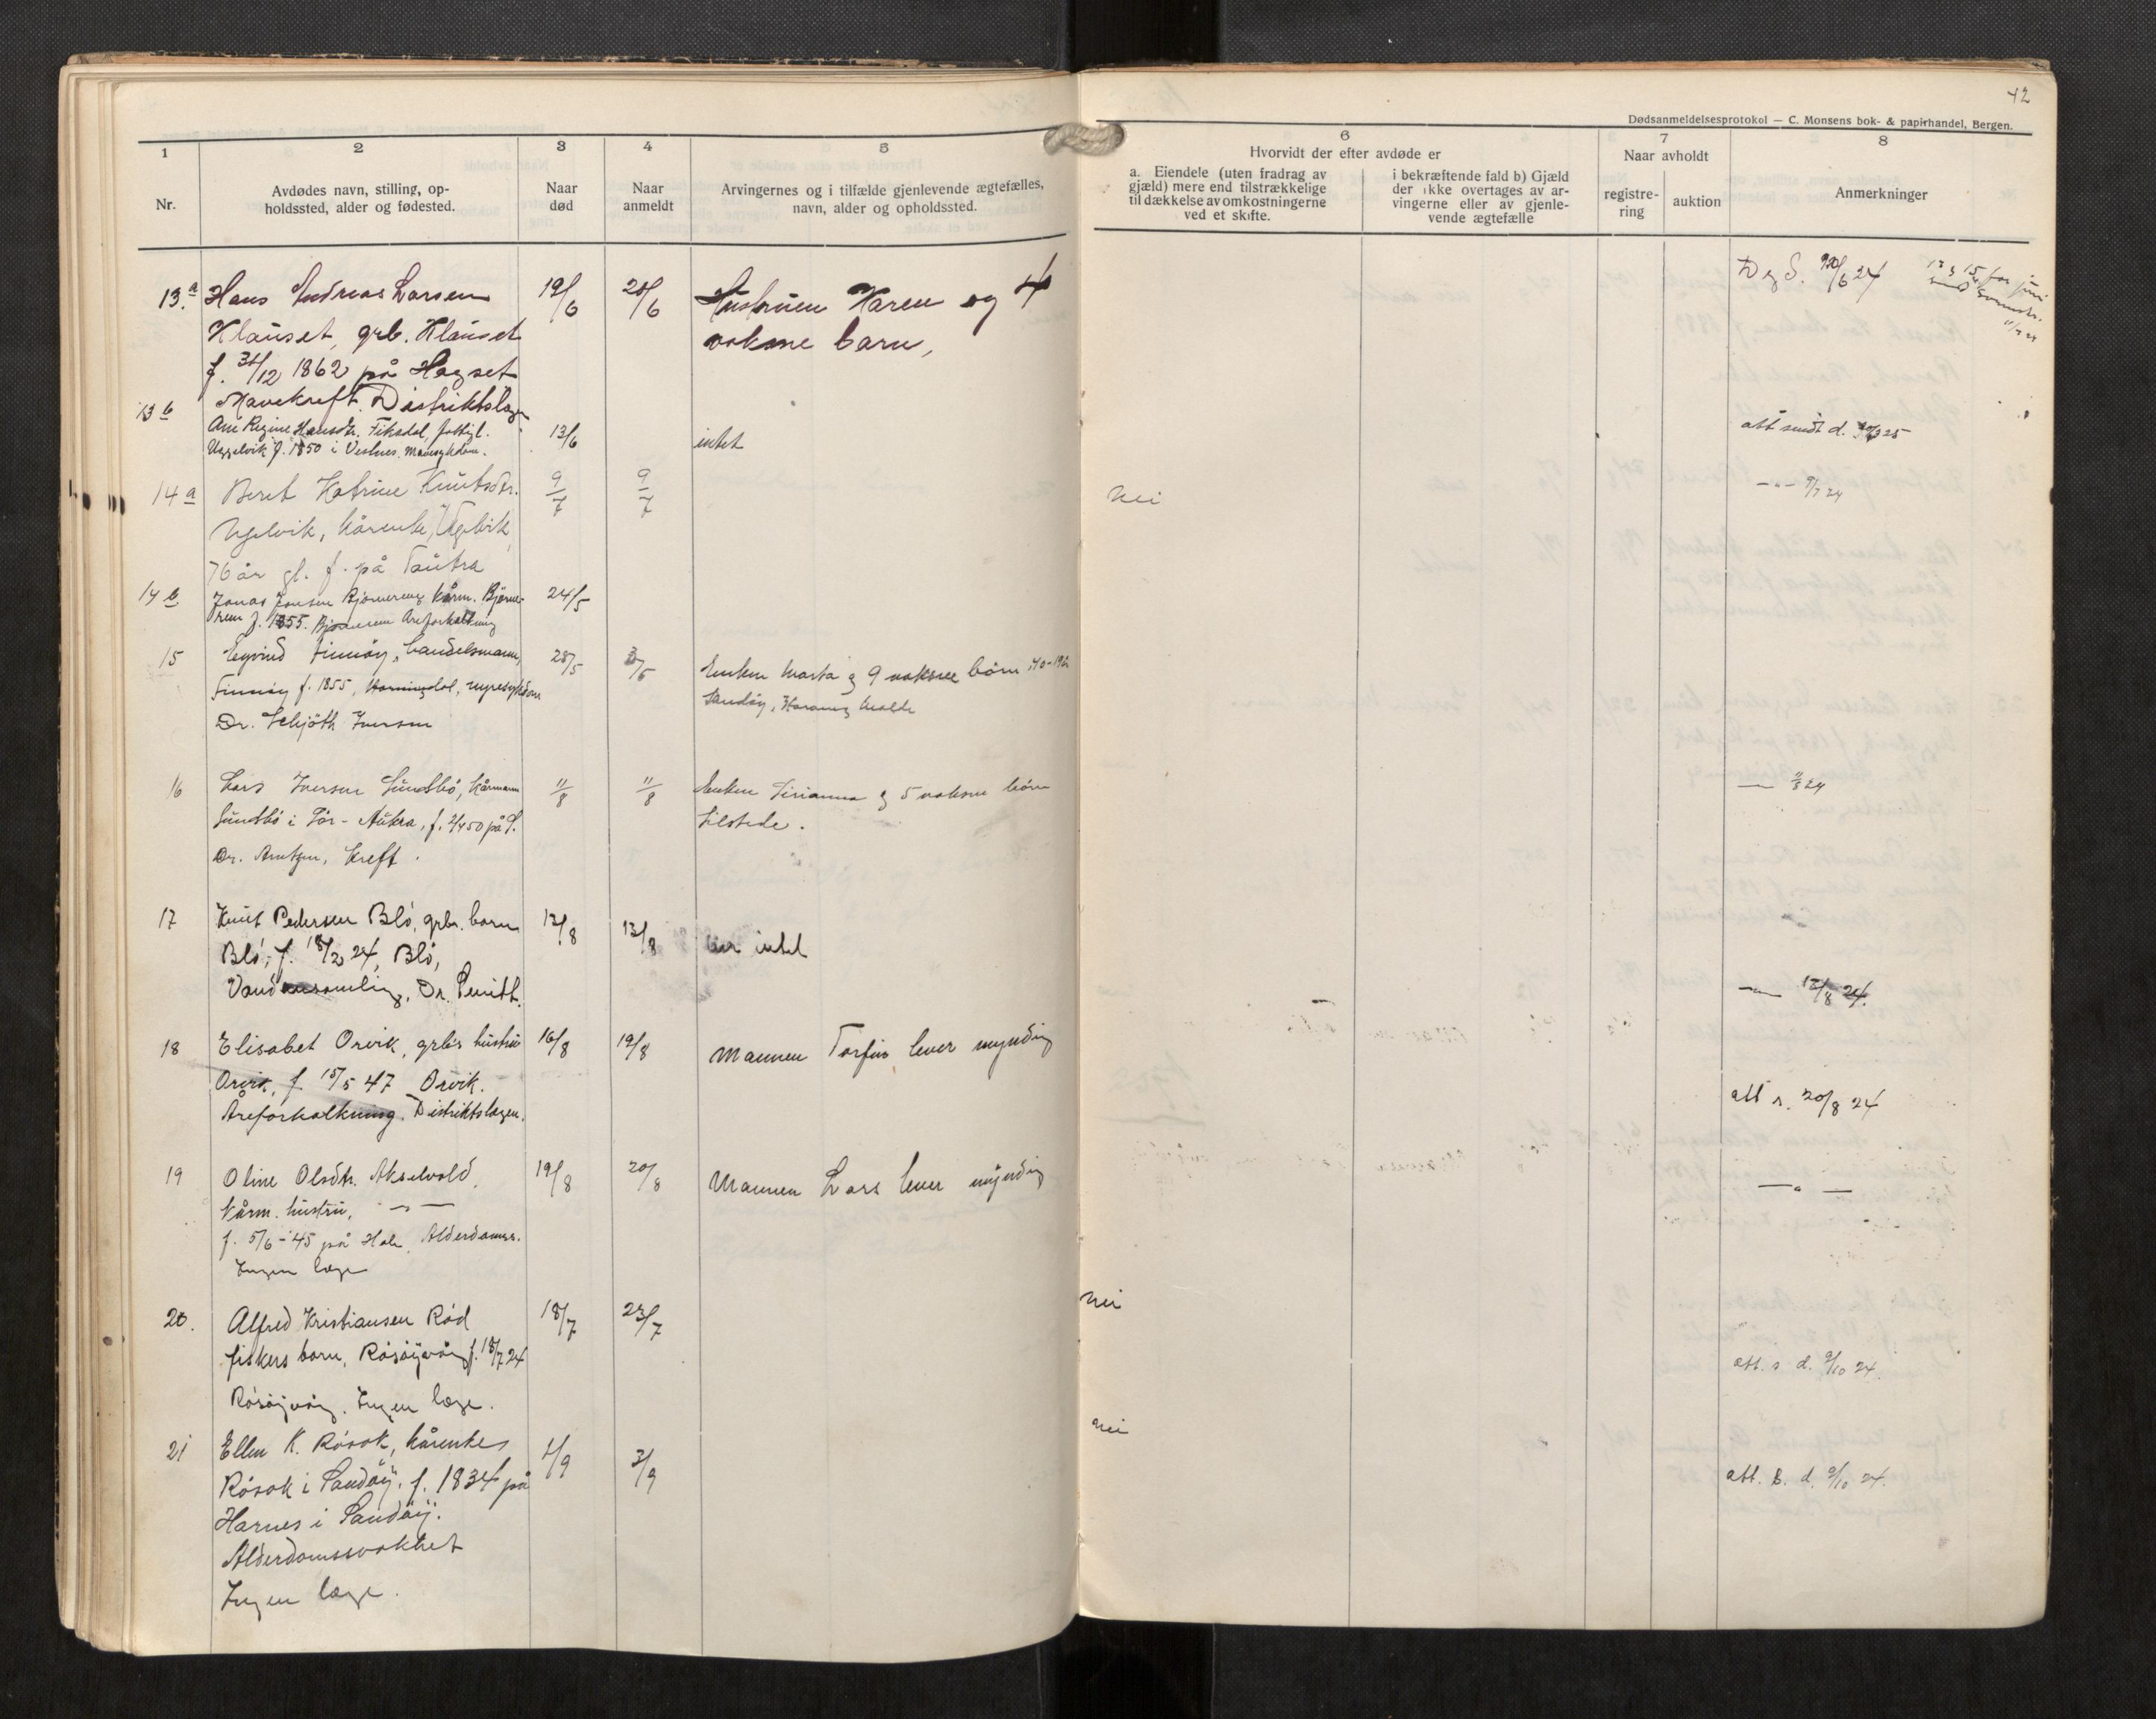 42
Dødsanmeldelsesprotokol — C. Monsens bok- & papirhandel, Bergen.
1 2 3 4 5
Nr.
Avdødes navn, stilling, op-
holdssted, alder og fødested.
Naar
død
Naar
anmeldt
Arvingernes og i tilfælde gjenlevende ægtefælles,
navn, alder og opholdssted.
6 7 8
Hvorvidt der efter avdøde er
a. Eiendele (uten fradrag av
gjæld) mere end tilstrækkelige
til dækkelse av omkostningerne
ved et skifte.
i bekræftende fald b) Gjæld
der ikke overtages av ar-
vingerne eller av gjenle-
vende ægtefælle
Naar avholdt
registre-
ring
auktion
Anmerkninger
13.a Hans Andreas Larsen 19/6 20/6 Hustruen Karen og 4
Klauset, grb. Klauset voksne barn,
f. 31/12 1862 på Hagset
Mavekreft. Distriktslægen
13 b Ane Regine Hansdtr. Fiksdal, fattigl. 13/6 intet att sendt d.
Uggelvik f. 1850 i Vestnes.
14 a Beret Katrine Knutsdtr. 9/7 9/7 Nei —"— 9/7 24
Ugelvik, kårenke, Ugelvik,
76 år gl. f. på Tautra
14 b Jonas Jonsen Bjørnerem kårm. Bjørne- 24/5
rem f. 1855. Bjørnerem Åreforkalkning
15 Eyvind Finnøy, handelsmann, 28/5 Enken Marta og 9 voksne børn
Finnøy f. 1855, Horningdal, nyresykdom Sandøy, Haram og Molde
Dr. Schjøth Iversen
16 Lars Iversen Sundsbø, kårmann 11/8 11/8 Enken og 5 voksne børn — 11/8 24
Sundsbø i Sør-Aukra, f. 2/4 50 på S. tilstede.
Dr. Arntzen, kreft.
17 Knut Pedersen Blø, grbr. barn 12/8 13/8 intet
Blø, f. 18/2 24, Blø,
Vandansamling, Dr. — 13/8 24.
18 Elisabet Orvik, grb's hustru 16/8 19/8 Mannen Torfin lever myndig
Orvik, f. 15/5 47 Orvik. att s. 20/8 24
Åreforkalkning. Distriktslægen.
19 Oline Olsdtr. Akselvold, 19/8 20/8 Mannen Lars lever myndig —"—
kårm. hustru, —"—
f. 5/6 - 45 på Hole, Alderdomss.
Ingen læge
20. Alfred Kristiansen Rød 18/7 23/7 Nei
fiskers barn, Røsøyvåg f. 18/7 24 att. s d. 9/10 24.
Røsøyvåg. Ingen læge.
21 Ellen K. Røsok, kårenke 1/9 3/9 Nei
Røsok i Sandøy. f. 1834 på att. s. d. 9/10 24.
Harnes i Sandøy.
Alderdomssvakhet
Ingen læge.